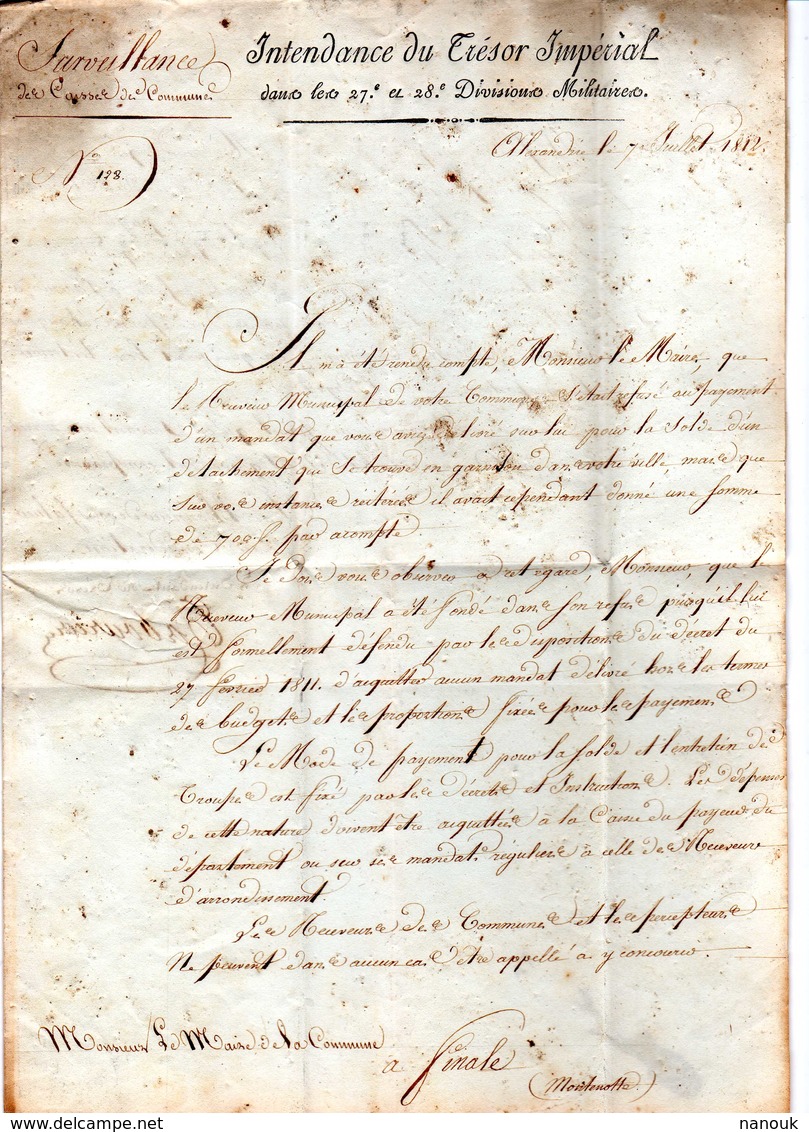 Surveillance
des Caisses des Communes
Intendance du Trésor Impérial
dans les 27.e et 28.e Divisions Militaires.
Alexandrie le 7 Juillet 1812.
No 128.
Il m'a été rendu compte, Monsieur le Maire, que
le Receveur Municipal de votre Commune s'était refusé au payement
d'un mandat que vous aviez délivré sur lui pour la Solde d'un
détachement qui se trouve en garnison dans votre ville, mais que
sur vos instances réitérées il avait cependant donné une somme
de 709 f. par acompte
Je dois vous observer à cet égard, Monsieur, que le
Receveur Municipal a été fondé dans son refus puisqu'il lui
est formellement défendu par les dispositions du décret du
27 fevrier 1811. d'acquitter aucun mandat délivré hors les termes
des budgets et les proportions fixées pour les payemens
Le Mode de payement pour la solde et l'entretien des
Troupes est fixé par les décrets et Instructions. Les dépenses
de cette nature doivent être acquittées à la Caisse du payeur du
département ou sur ses mandats réguliers à celle des Receveurs
d'arrondissement.
Les Receveurs des Communes et les percepteurs
Ne peuvent dans aucun cas être appellé à y concourir.
Monsieur Le Maire de la Commune
a Finale
(Montenotte)
nanouk